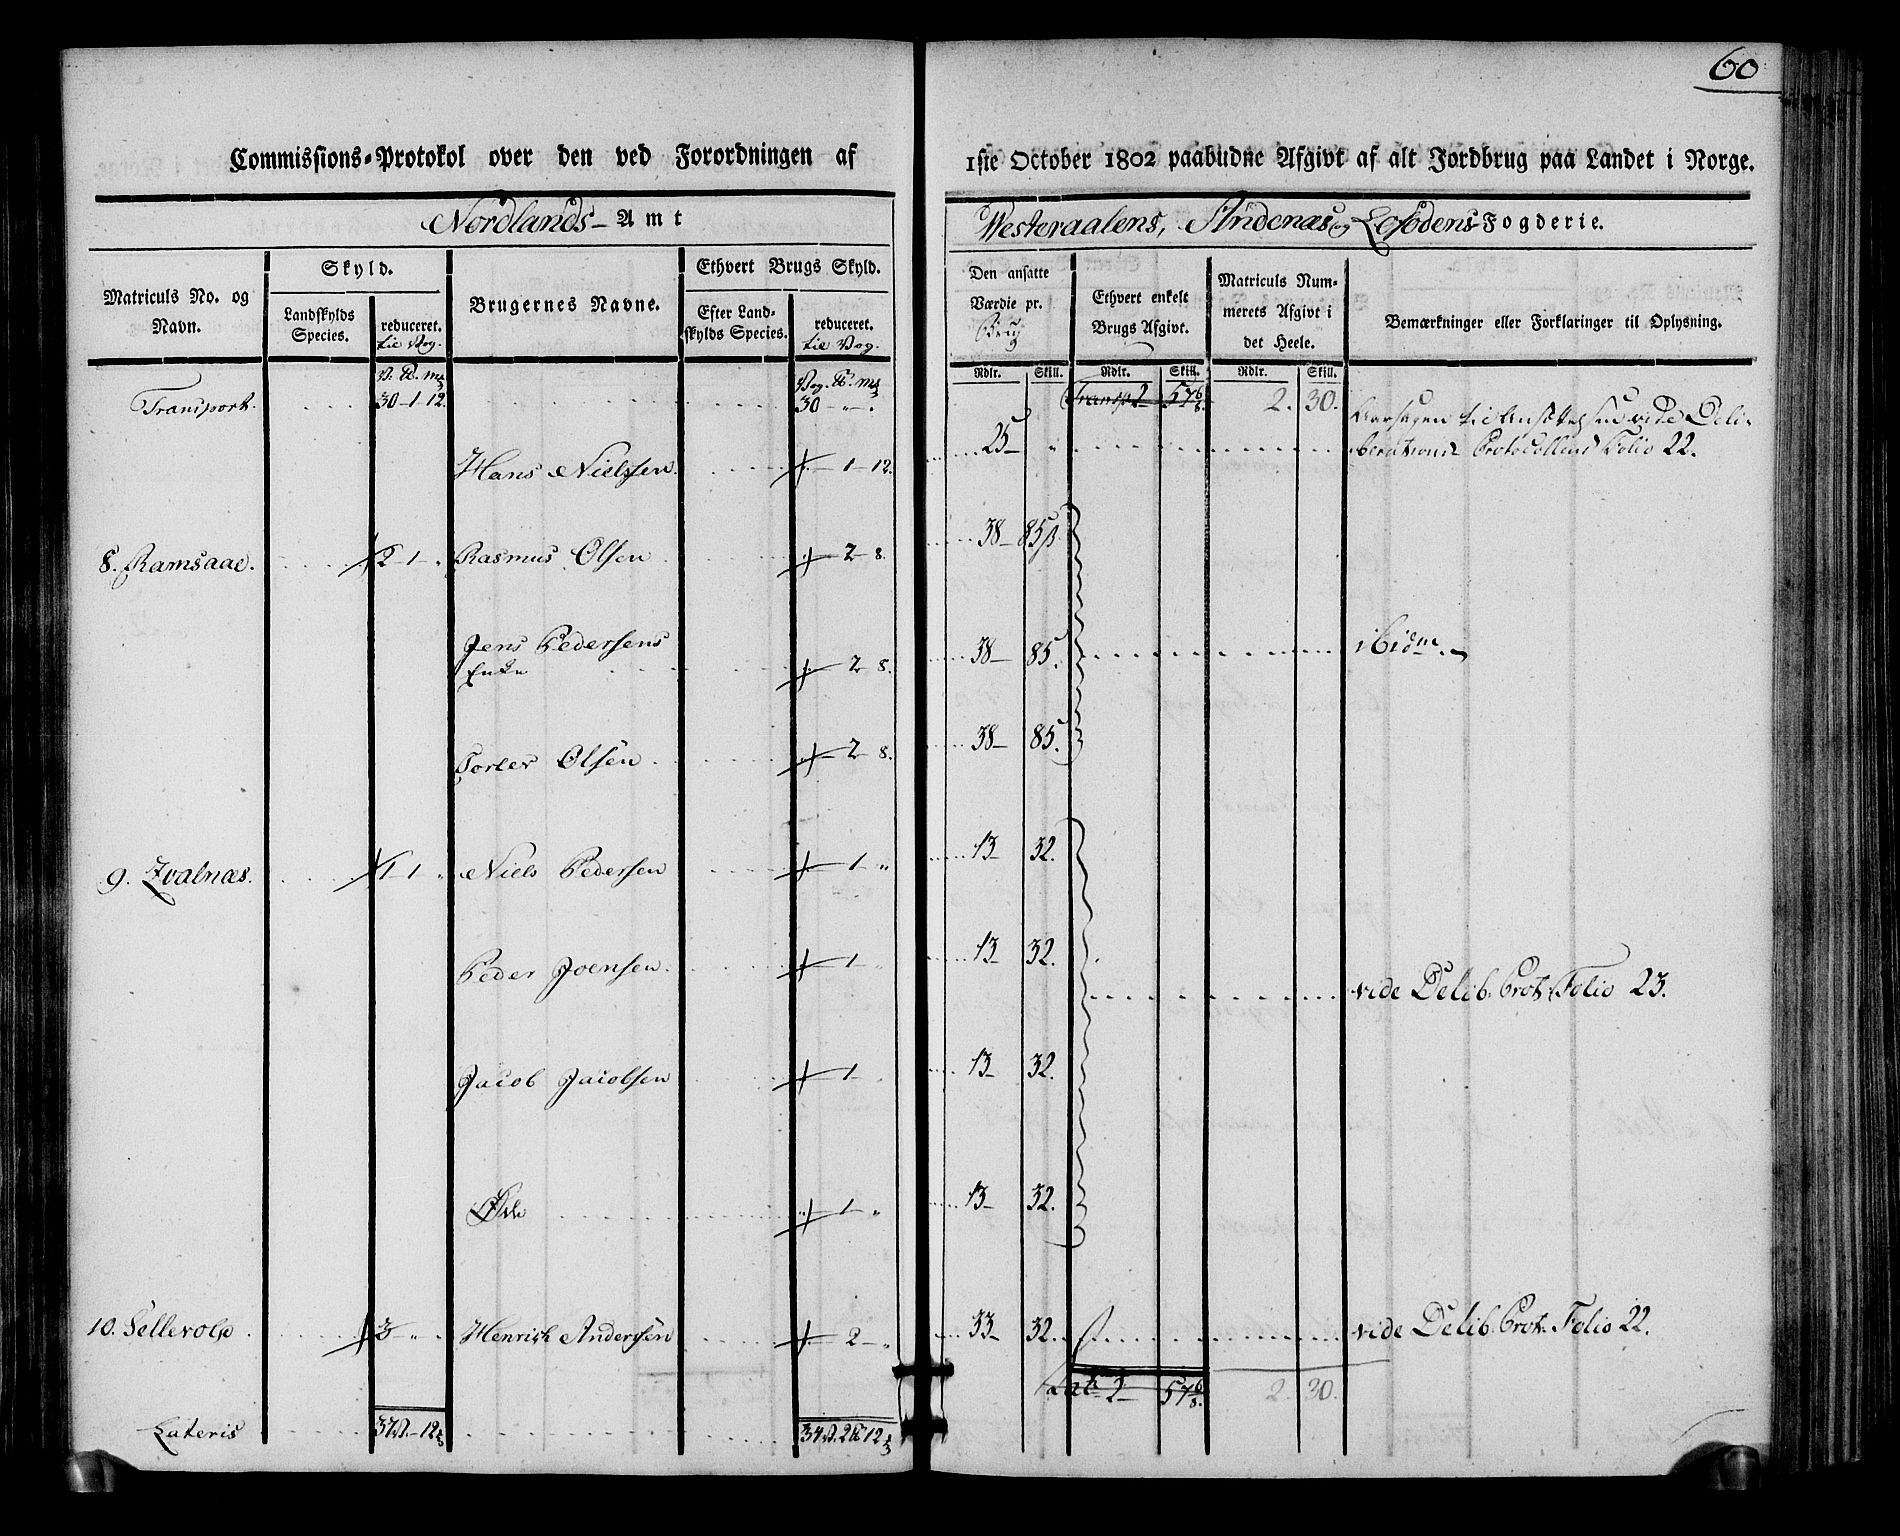 60
Commissions-Protokol over den ved Forordningen af
1ste October 1802 paabudne Afgivt af alt Jordbrug paa Landet i Norge.
Nordlands- Amt
Westeraalens, Andenæs og Lofodens Fogderie.
Matriculs No. og Navn.
Skyld.
Landskylds Species.
reduceret. til Vog.
Brugernes Navne.
Ethvert Brugs Skyld.
Efter Landskylds Species.
reduceret. til Vog.
Den ansatte Værdie pr. Brug
Ethvert enkelt Brugs Afgivt.
Matriculs Nummerets Afgivt i det Heele.
Bemærkninger eller Forklaringer til Oplysning.
Rdlr. Skill. Rdlr. Skill. Rdlr. Skill.
Transport. 30-1-12. 30 Transp 2 57 6/8. 2. 30.
Hans Nielssen. 1-12. 25 Aarsagen til Ansættelsen vide Deli-
berations Protocollens Folio 22.
8. Ramsaae. 2-1 Rasmus Olsen 2-8. 38-85ß
Jens Pedersens
Enke 2-8. 38-85. ibidem.
Torler Olsen 2-8. 38-85.
9. Zvalnæs. 1-1 Niels Pedersen 1 " 13 32.
Peder Joensen. 1 13 32.
vide Delib. Prot. Folio 23.
Jacob Jacobsen 1 13 32.
Øde 1 " 13 32.
10. Sellevold 3 " Henrich Anderssen 2 " 33 32. vide Delib. Prot. Folio 22.
Lat. 2 57 6/8. 2. 30.
Lateris 37 V. - 12 34 V. 2 12